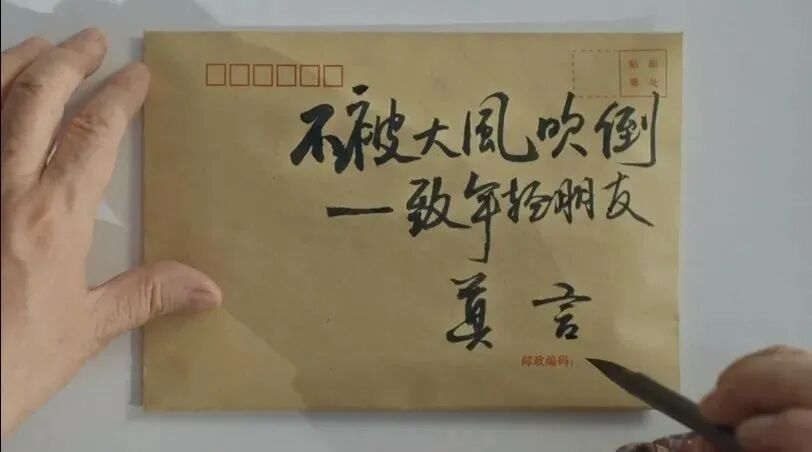 贴 邮
票 处
不被大風吹倒
—致年轻朋友
莫言
邮政编码：